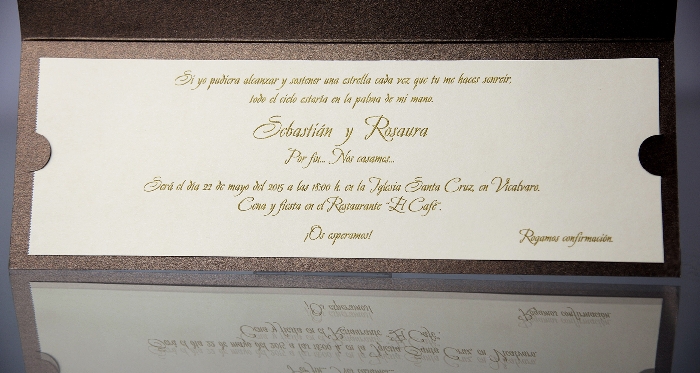 Si yo pudiera alcanzar y sostener una estrella cada vez que tu me haces sonreir,
todo el cielo estaria en la palma de mi mano.
Sebastián y Rosaura
Por fin... Nos casamos...
Será el día 22 de mayo del 2015 a las 18:00 h. en la Iglesia Santa Cruz, en Vicalvaro.
Cena y fiesta en el Restaurante "El Café".
¡Os esperamos!
Rogamos confirmación.